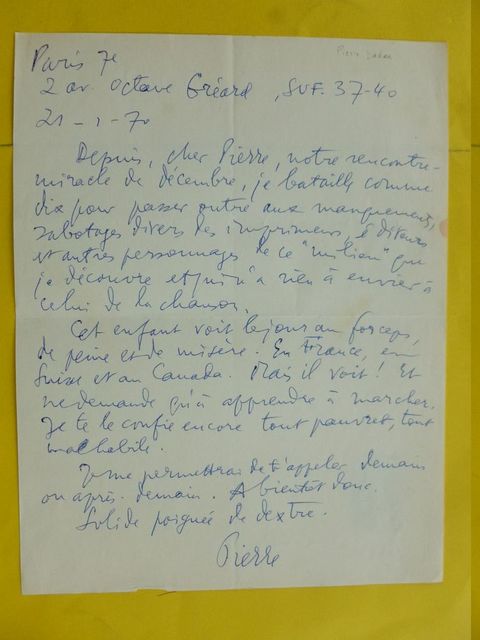 Paris 7e
2 av. Octave Gréard, SUF. 37-40
21-1-70
Depuis, cher Pierre, notre rencontre-
miracle de décembre, je bataille comme
dix pour passer outre aux manquements,
sabotages divers des imprimeurs, éditeurs
et autres personnages de ce "milieu" que
je découvre et qui n'a rien à envier à
celui de la chanson.
Cet enfant voit le jour au forceps,
de peine et de misère. En France, en
Suisse et au Canada. Mais il voit ! Et
ne demande qu'à apprendre à marcher.
Je te le confie encore tout pauvret, tout
malhabile.
Je me permettrai de t'appeler demain
ou après-demain. A bientôt donc.
Solide poignée de dextre.
Pierre